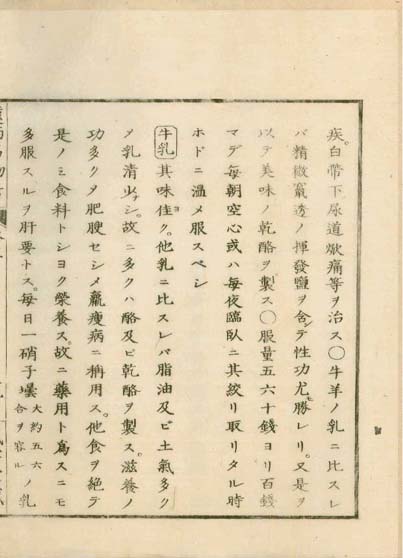 疾。白帶下尿道焮痛等ヲ治ス〇牛羊ノ乳ニ比スレ
バ精微竄透ノ揮發鹽ヲ含テ性功尤モ勝レリ。又是ヲ
以テ美味ノ乾酪ヲ製ス〇服量五六十錢ヨリ百錢
マデ每朝空心或ハ每夜臨臥ニ其絞リ取リタル時
ホドニ溫メ服スベシ
牛乳其味佳ク。他乳ニ比スレバ脂油及ビ土氣多ク
メ乳淸少ナシ。故ニ多クハ酪及ビ乾酪ヲ製ス。滋養ノ
功多クメ肥腴セシメ羸瘦病ニ稱用ス。他食ヲ絕テ
是ノミ食料トシヨク榮養ス。故ニ藥用ト爲スニモ
多服スルヲ肝要トス。每日一硝子壜大約五六合ヲ容ルノ乳